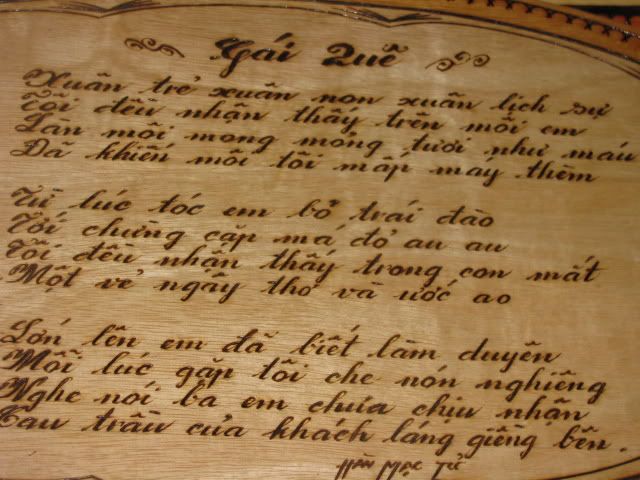 Gái Quê
Xuân trẻ xuân non xuân lịch sự
Tôi đều nhận thấy trên môi em
Làn môi mong mỏng tươi như máu
Đã khiến môi tôi mấp máy thèm
Từ lúc tóc em bỏ trái đào
Tới chừng cặp má đỏ au au
Tôi đều nhận thấy trong con mắt
Một vẻ ngây thơ và ước ao
Lớn lên em đã biết làm duyên
Mỗi lúc gặp tôi che nón nghiêng
Nghe nói ba em chưa chịu nhận
Cau trầu của khách láng giềng bên.
Hàn Mạc Tử